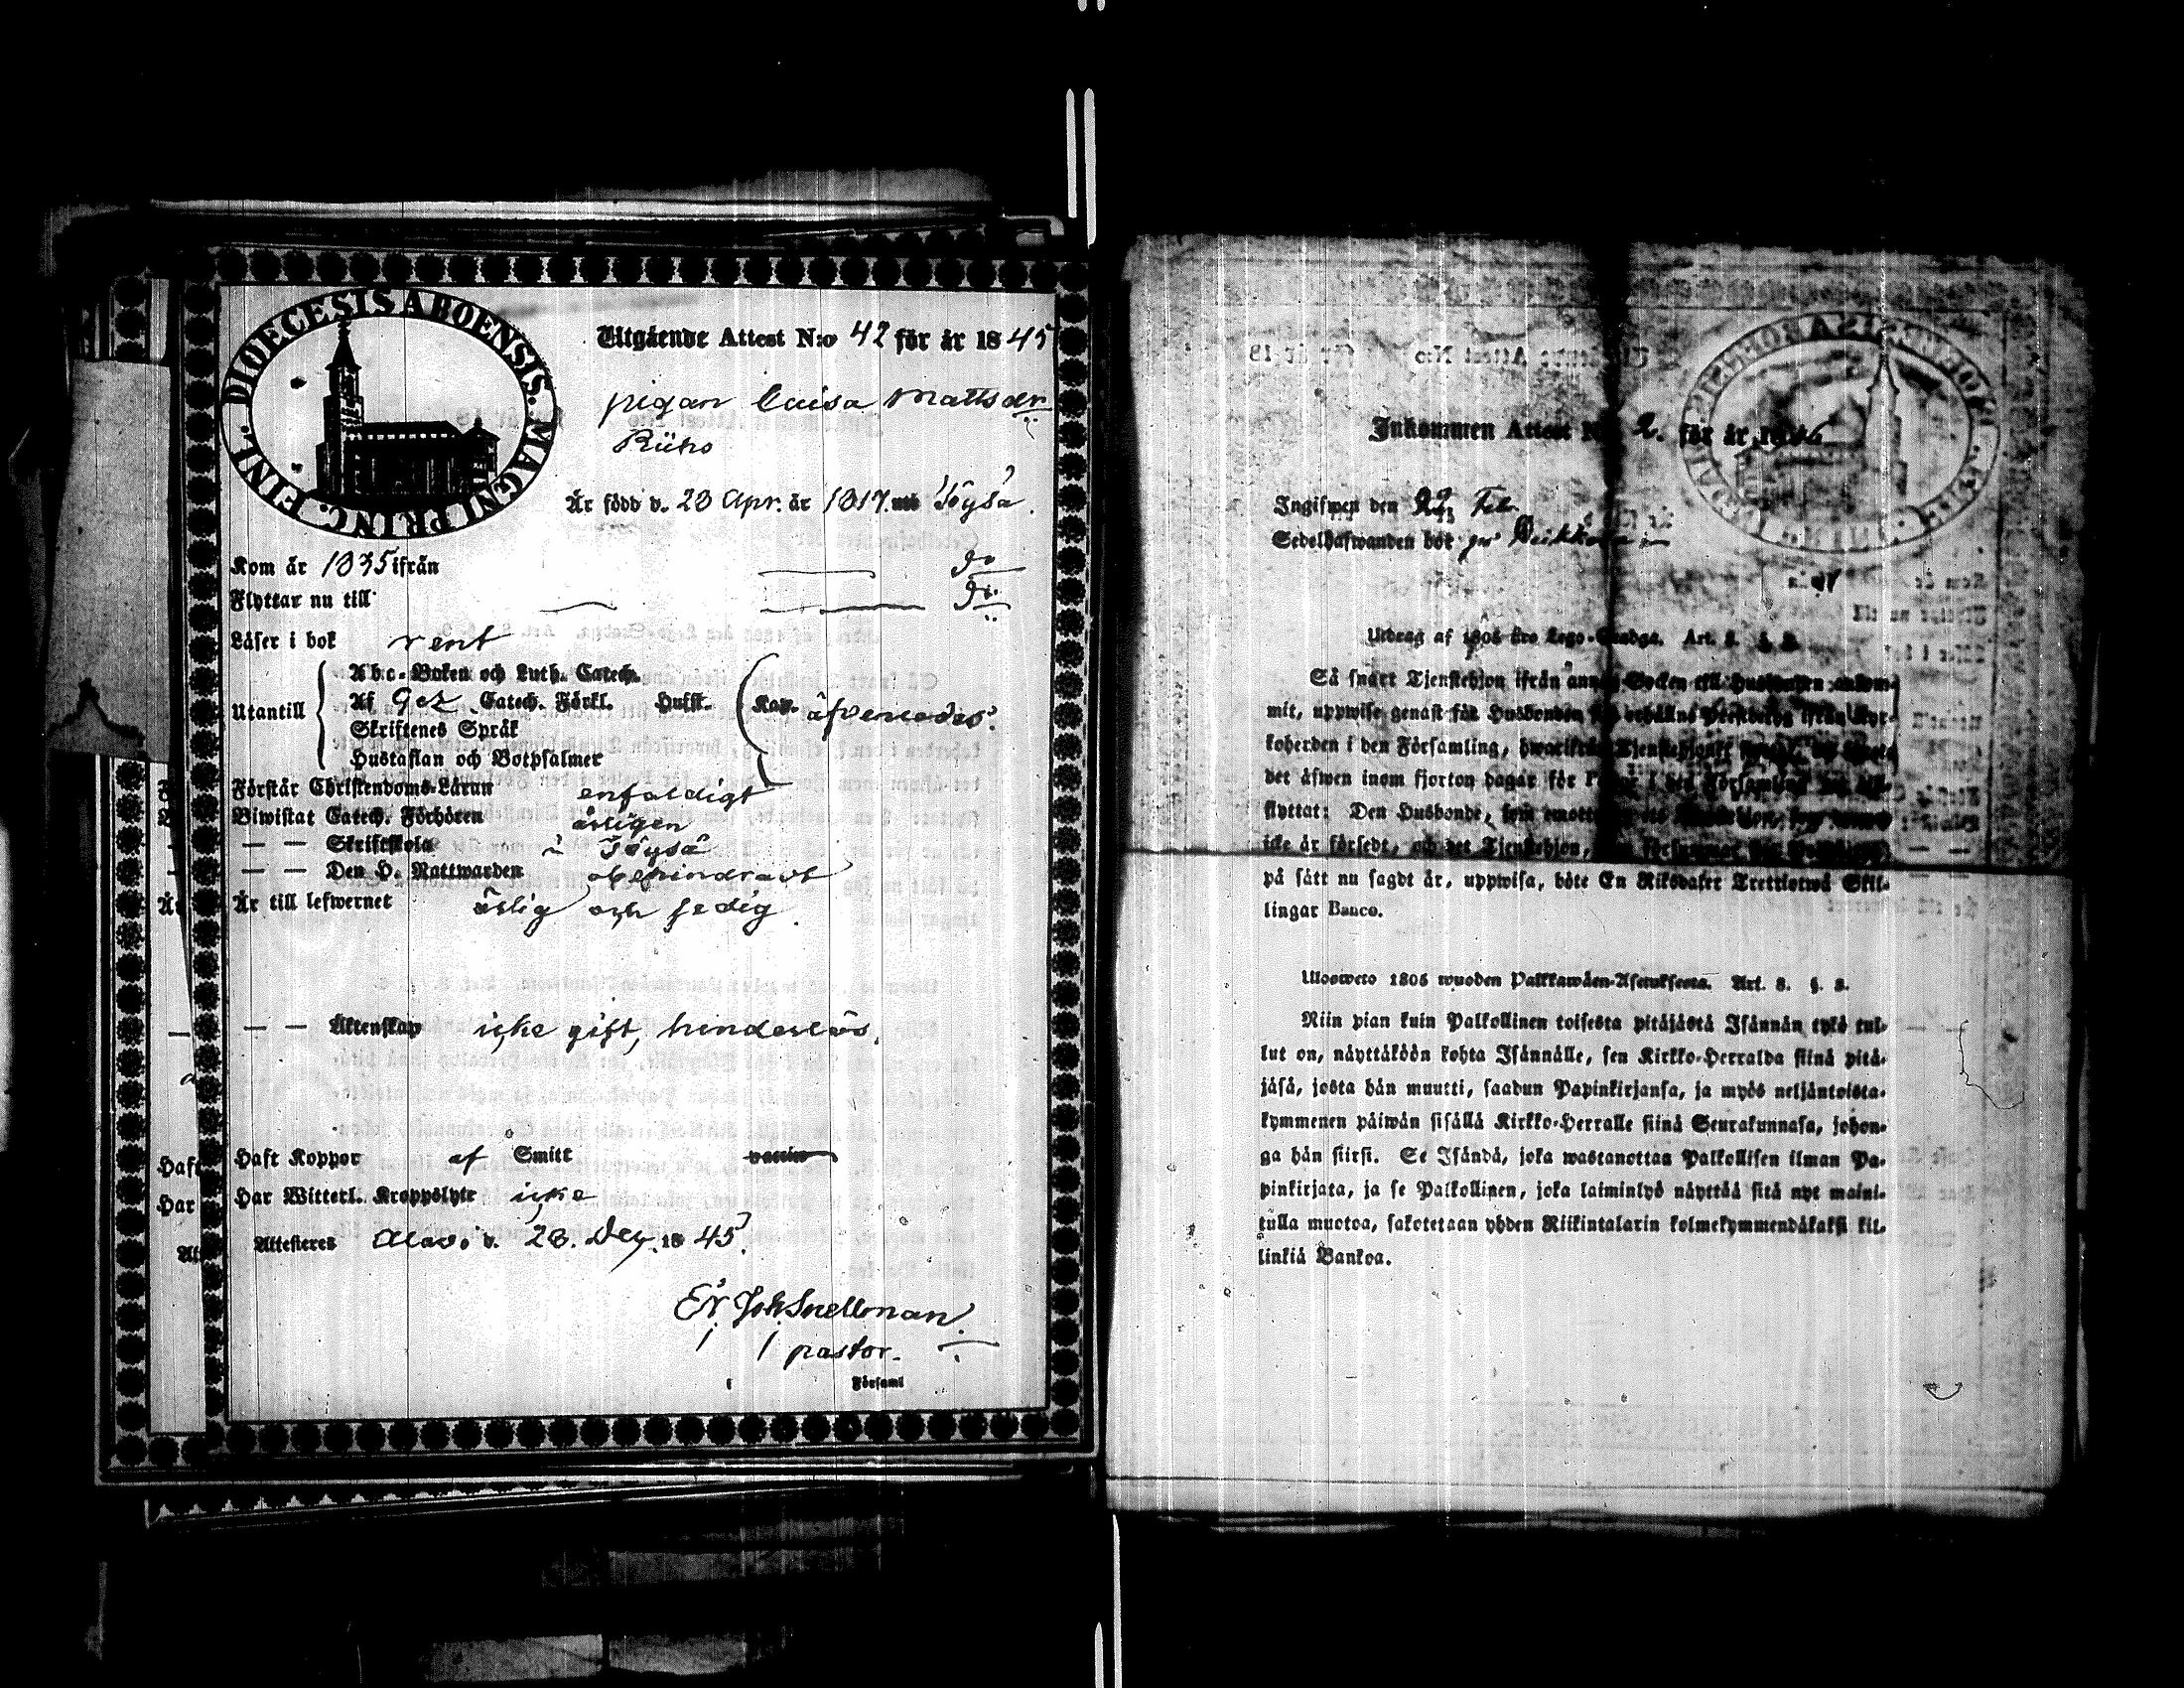 DIOECESIS ABOENSIS. MAGNI PRINC. FINL.
Utgående Attest N:o 42 för år 1845
pigan Caisa Mattsdr
Riiho
Är född d. 23 Apr. år 1817. uti Töysä.
Kom år 1835 ifrån — do
Flyttar nu till — — do
Läser i bok rent
Utantill
Abc-Boken och Luth. Catech.
Af Gez. Catech. Förkl. Hufst. Kap. äfvenledes.
Skriftenes Språk
Hustaflan och Botpsalmer
Förstår Christendoms-Läran enfaldigt
Biwistat Catech. Förhören årligen
— — Skriftskola i Töysä
— — Den H. Nattwarden obehindradt
Är till lefwernet ärlig och sedig.
— — Äktenskap icke gift, hinderslös.
Haft Koppor af Smitt vaccin
Har Witterl. Kroppslyte icke
Attesteres Alavo d. 28. Dec. 1845.
Er. Joh. Snellman.
pastor.
i Församl
Inkommen Attest N 2. för år 1846
Ingifwen den 22 Feb.
Sedelhafwanden bor på
Utdrag af 1805 års Lego-Stadga. Art. 8. §. 2.
Så snart Tjenstehjon ifrån annan Socken till Husbonden ankom-
mit, uppwise genast för Husbonden ifrån Kyr-
koherden i den Församling,
det äfwen inom fjorton dagar för i den Församling
flyttat: Den Husbonde, som
icke är försedt, och det Tjenstehjon,
på sätt nu sagdt är, uppwisa, böte En Riksdaler Trettiotwå Skil-
lingar Banco.
Ulosweto 1805 wuoden Palkkawäen-Asetuksesta. Art. 8. §. 2.
Niin pian kuin Palkollinen toisesta pitäjästä Isännän tykö tul-
lut on, näyttäköön kohta Isännälle, sen Kirkko-Herralda siinä pitä-
jäsä, josta hän muutti, saadun Papinkirjansa, ja myös neljäntoista-
kymmenen päiwän sisällä Kirkko-Herralle siinä Seurakunnasa, johon-
ga hän siirsi. Se Isändä, joka wastanottaa Palkollisen ilman Pa-
pinkirjata, ja se Palkollinen, joka laiminlyö näyttää sitä nyt maini-
tulla muotoa, sakotetaan yhden Riikintalarin kolmekymmendäkaksi kil-
linkiä Bankoa.